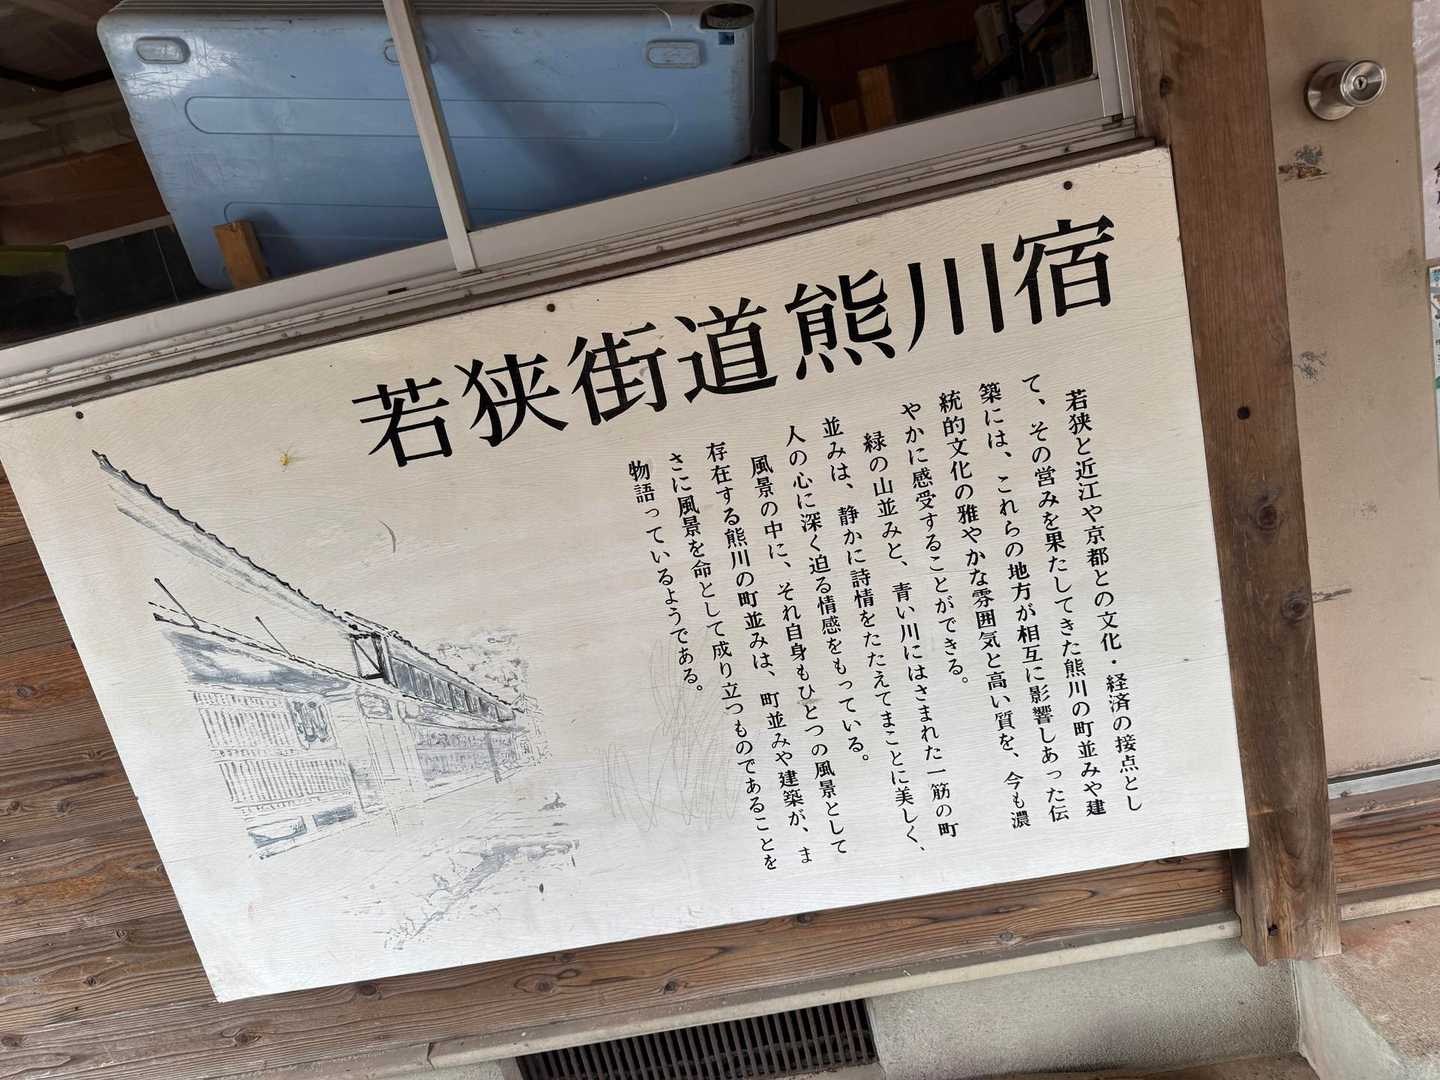 若狭街道熊川宿
若狭と近江や京都との文化・経済の接点とし
て、その営みを果たしてきた熊川の町並みや建
築には、これらの地方が相互に影響しあった伝
統的文化の雅やかな雰囲気と高い質を、今も濃
やかに感受することができる。
緑の山並みと、青い川にはさまれた一筋の町
並みは、静かに詩情をたたえてまことに美しく、
人の心に深く迫る情感をもっている。
風景の中に、それ自身もひとつの風景として
存在する熊川の町並みは、町並みや建築が、ま
さに風景を命として成り立つものであることを
物語っているようである。